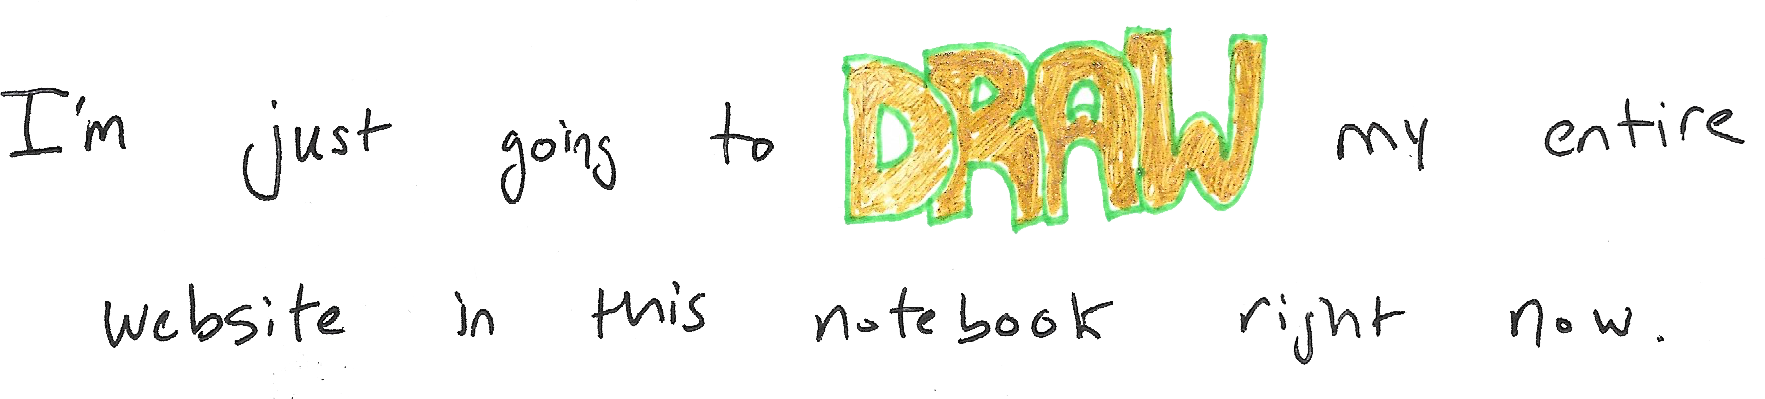 I'm just going to DRAW my entire
website in this notebook right now.